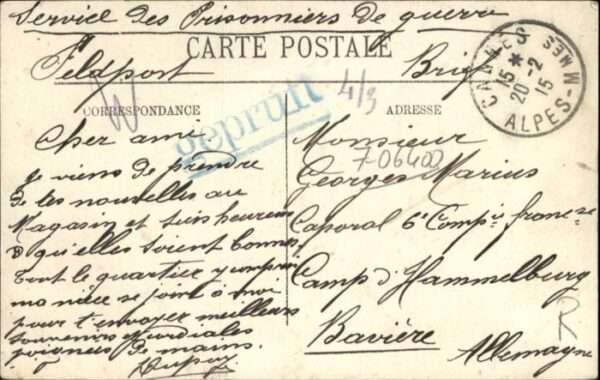 Service des Prisonniers de guerre
CARTE POSTALE
Feldpost Brief
CANNES
ALPES-MMES
15 *
20-2
15
W
geprüft
4/3
CORRESPONDANCE
ADRESSE
Cher ami
Je viens de prendre
de tes nouvelles au
Magasin et suis heureux
qu'elles soient bonnes
Tout le quartier y compris
ma nièce se joint à moi
pour t'envoyer meilleurs
souvenirs et cordiales
poignées de mains.
Dupuy
Monsieur
706400
Georges Marius
Caporal 6e Compie franc-se
Camp d'Hammelburg
Bavière
Allemagne
R